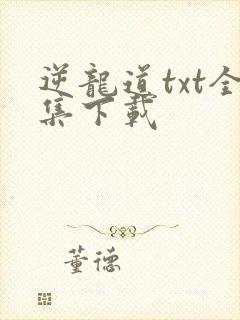 逆龍道txt全
集下載
董德